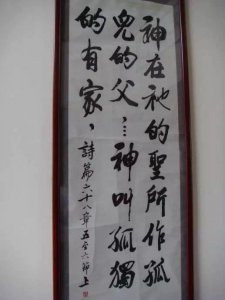 神在祂的聖所作孤
兒的父…神叫孤獨
的有家、詩篇六十八章五至六節上